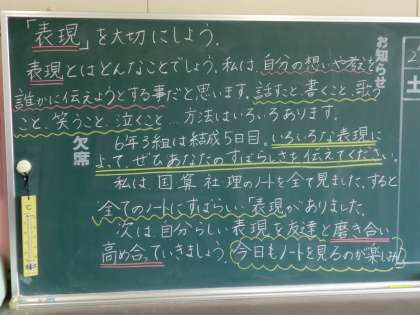 「表現」を大切にしよう.
表現とはどんなことでしょう.私は、自分の想いや考えを
誰かに伝えようとする事だと思います.話すこと、書くこと、歌う
こと、笑うこと、泣くこと…方法はいろいろあります.
6年3組は結成5日目.いろいろな表現に
よって、ぜひあなたのすばらしさを伝えてください.
私は、国算社理のノートを全て見ました.すると
全てのノートにすばらしい「表現」がありました.
次は自分らしい表現を友達と磨き合い
高め合っていきましょう.今日もノートを見るのが楽しみ
お知らせ
欠席
2
土